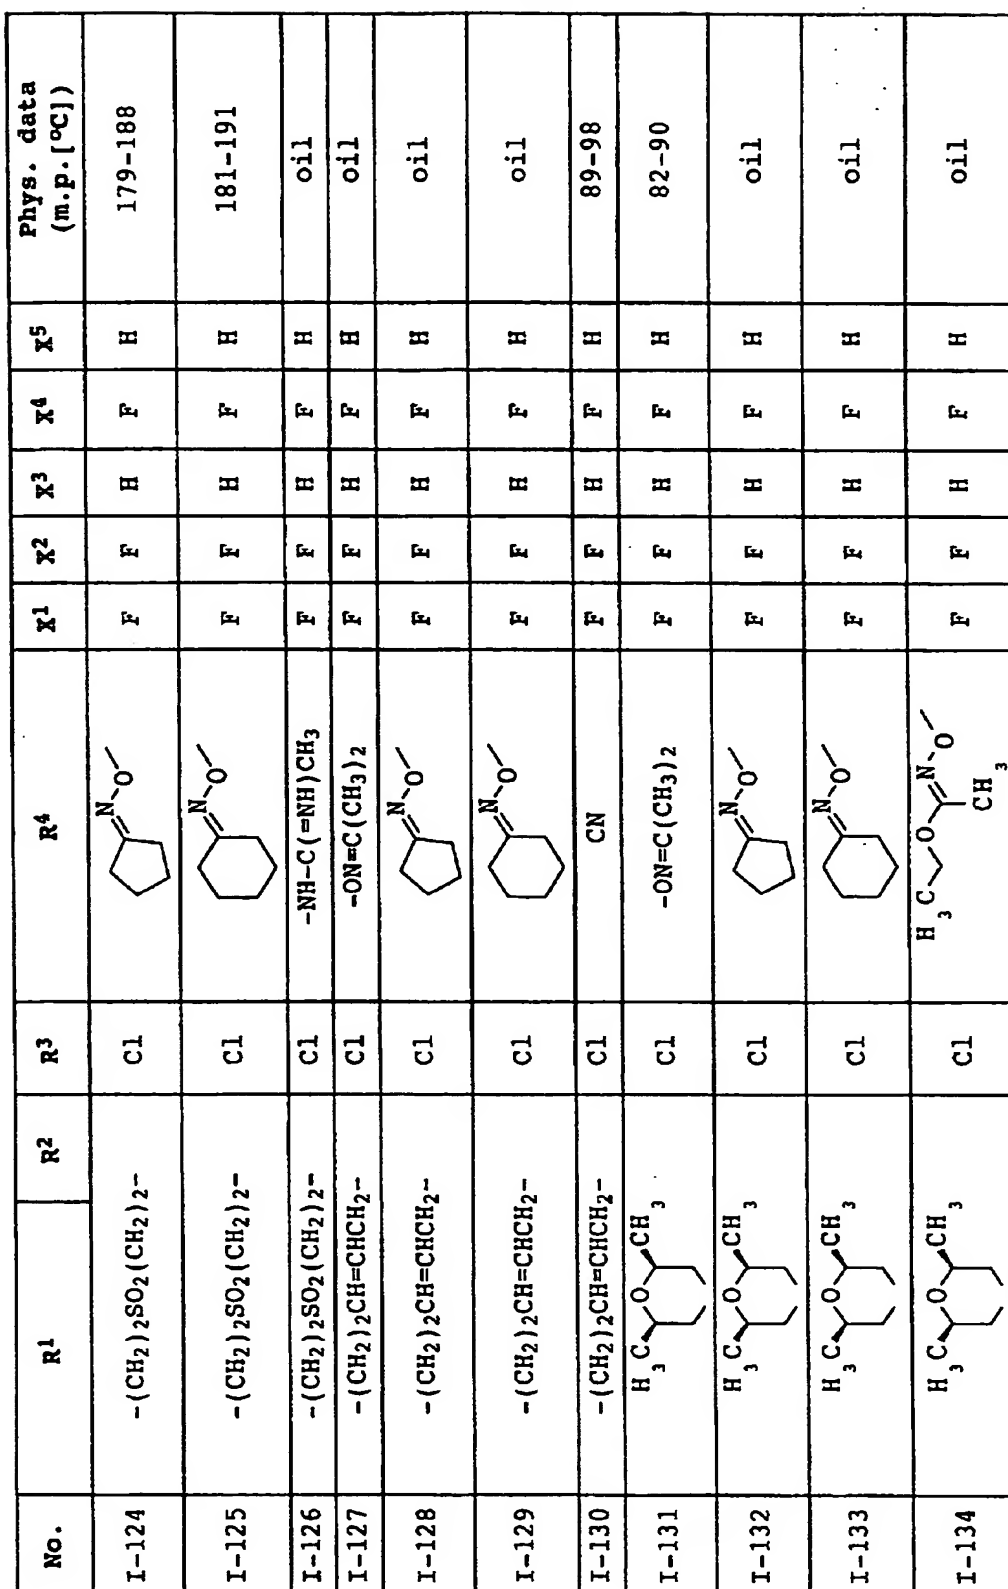 No. R1 R2 R3 R4 X1 X2 X3 X4 X5 Phys. data (m.p.[ºC])
I-124 -(CH2)2SO2(CH2)2- Cl N-O F F H F H 179-188
I-125 -(CH2)2SO2(CH2)2- Cl N-O F F H F H 181-191
I-126 -(CH2)2SO2(CH2)2- Cl -NH-C(=NH)CH3 F F H F H oil
I-127 -(CH2)2CH=CHCH2- Cl -ON=C(CH3)2 F F H F H oil
I-128 -(CH2)2CH=CHCH2- Cl N-O F F H F H oil
I-129 -(CH2)2CH=CHCH2- Cl N-O F F H F H oil
I-130 -(CH2)2CH=CHCH2- Cl CN F F H F H 89-98
I-131 H3C O CH3 Cl -ON=C(CH3)2 F F H F H 82-90
I-132 H3C O CH3 Cl N-O F F H F H oil
I-133 H3C O CH3 Cl N-O F F H F H oil
I-134 H3C O CH3 Cl H3C O N-O CH3 F F H F H oil